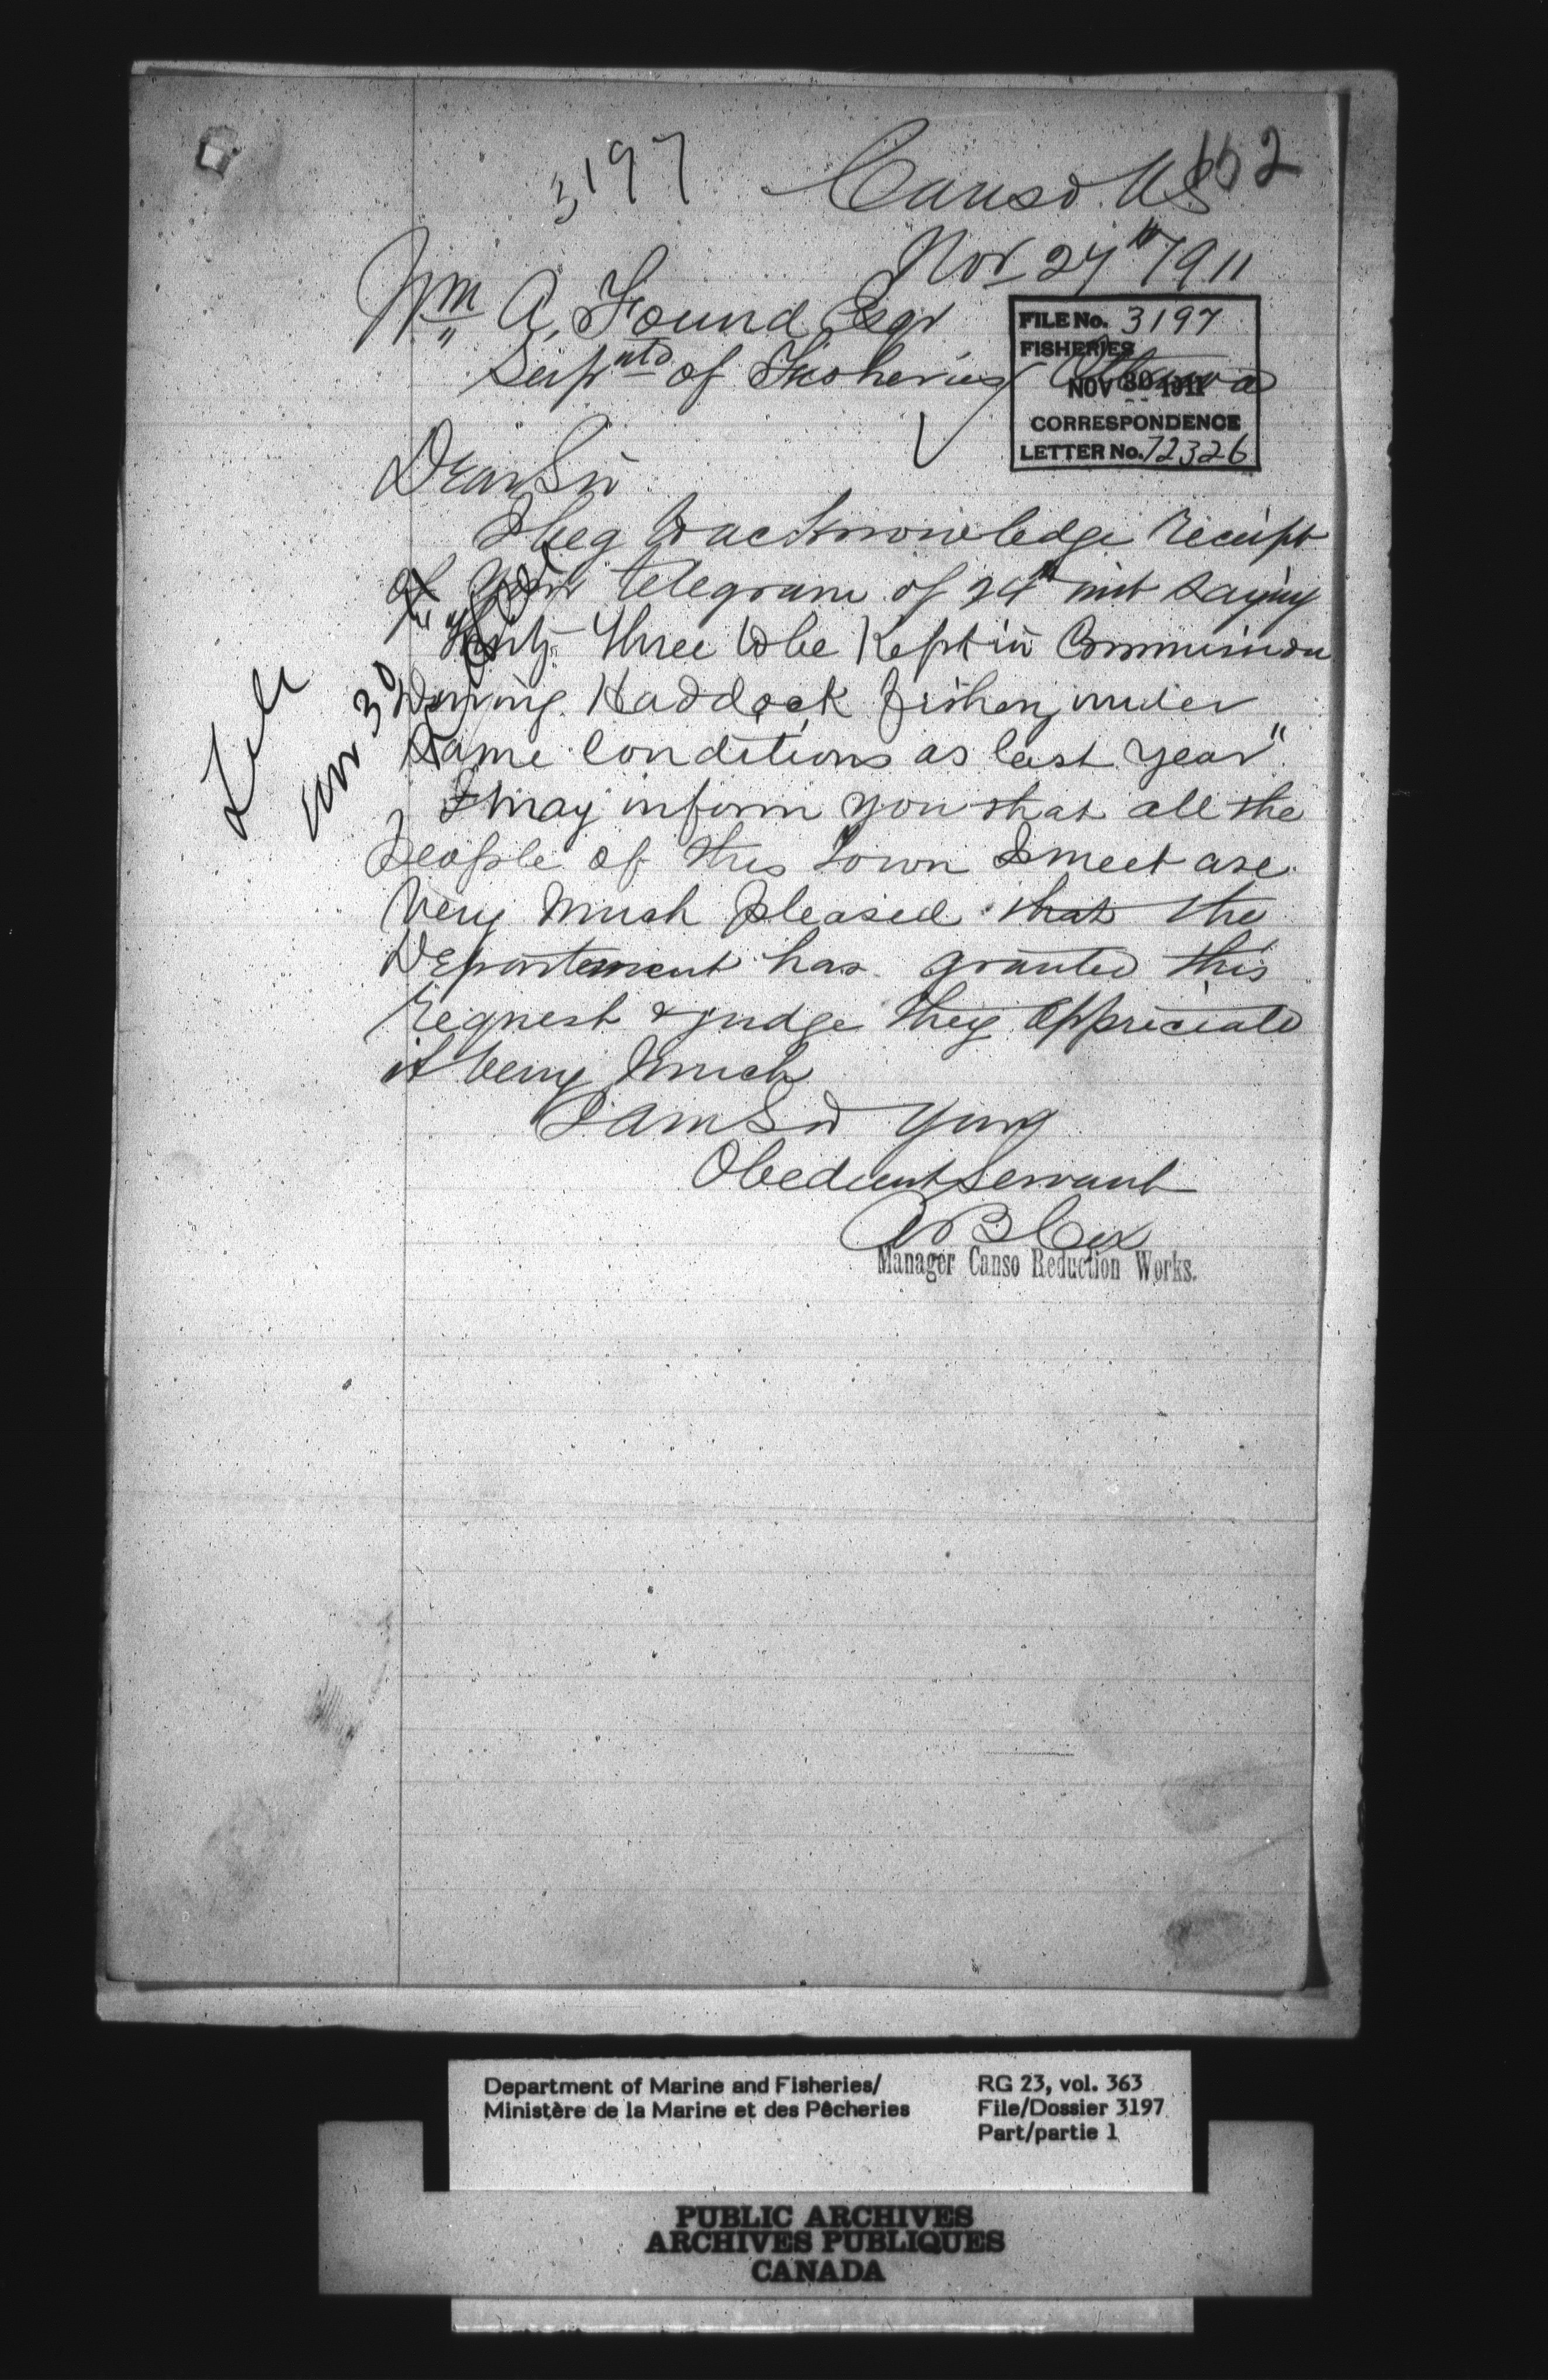 3197
152
Canso NS
Nov 27th 1911
Wm A. Found Esqr
Supntd of Fisheries Ottawa
FILE No. 3197
FISHERIES
NOV 30 1911
CORRESPONDENCE
LETTER No. 72326
Dear Sir
I beg to acknowledge receipt
of your telegram of 24th inst saying
three to be Kept in Commission
During Haddock fishery under
same conditions as last year"
I may inform you that all the
People of this town I meet are
very much pleased that the
Department has granted this
request & judge they appreciate
it very much
I am Sir Your
Obedient Servant
Cox
Manager Canso Reduction Works.
File
Department of Marine and Fisheries/
Ministère de la Marine et des Pêcheries
RG 23, vol. 363
File/Dossier 3197
Part/partie 1
PUBLIC ARCHIVES
ARCHIVES PUBLIQUES
CANADA